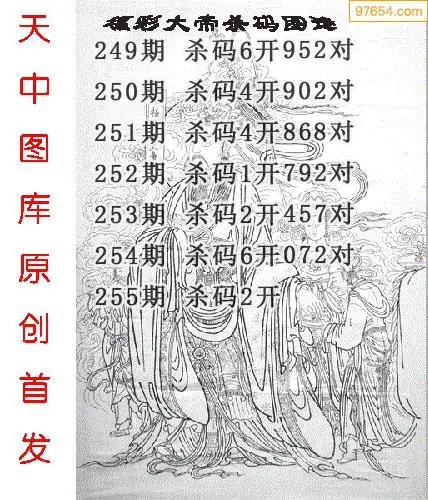 97654.com
福彩大帝杀码图
249期 杀码6开952对
250期 杀码4开902对
251期 杀码4开868对
252期 杀码1开792对
253期 杀码2开457对
254期 杀码6开072对
255期 杀码2开
天中图库原创首发